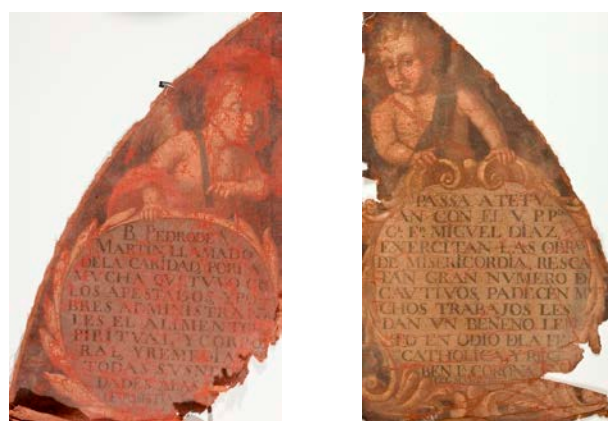 B. PEDRO DE S.
MARTIN LLAMADO
DE LA CARIDAD, POR LA
MUCHA QU TUVO CO
LOS APESTADOS Y PO
BRES ADMINISTRA
LES EL ALIMENTO
PIRITVAL, Y CORPO
RAL Y REMEDIA
TODAS SVS NE
DADES
PASSA A TETU
AN CON EL V. P. Pº
Fº MIGVEL DIAZ,
EXERCITAN LAS OBRA
DE MISERICORDIA, RESCA
TAN GRAN NVMERO D
CAVTIVOS, PADECEN M
CHOS TRABAJOS LES
DAN VN BENENO LEN
TO EN ODIO DLA FE
CATHOLICA, Y
BEN L CORONA